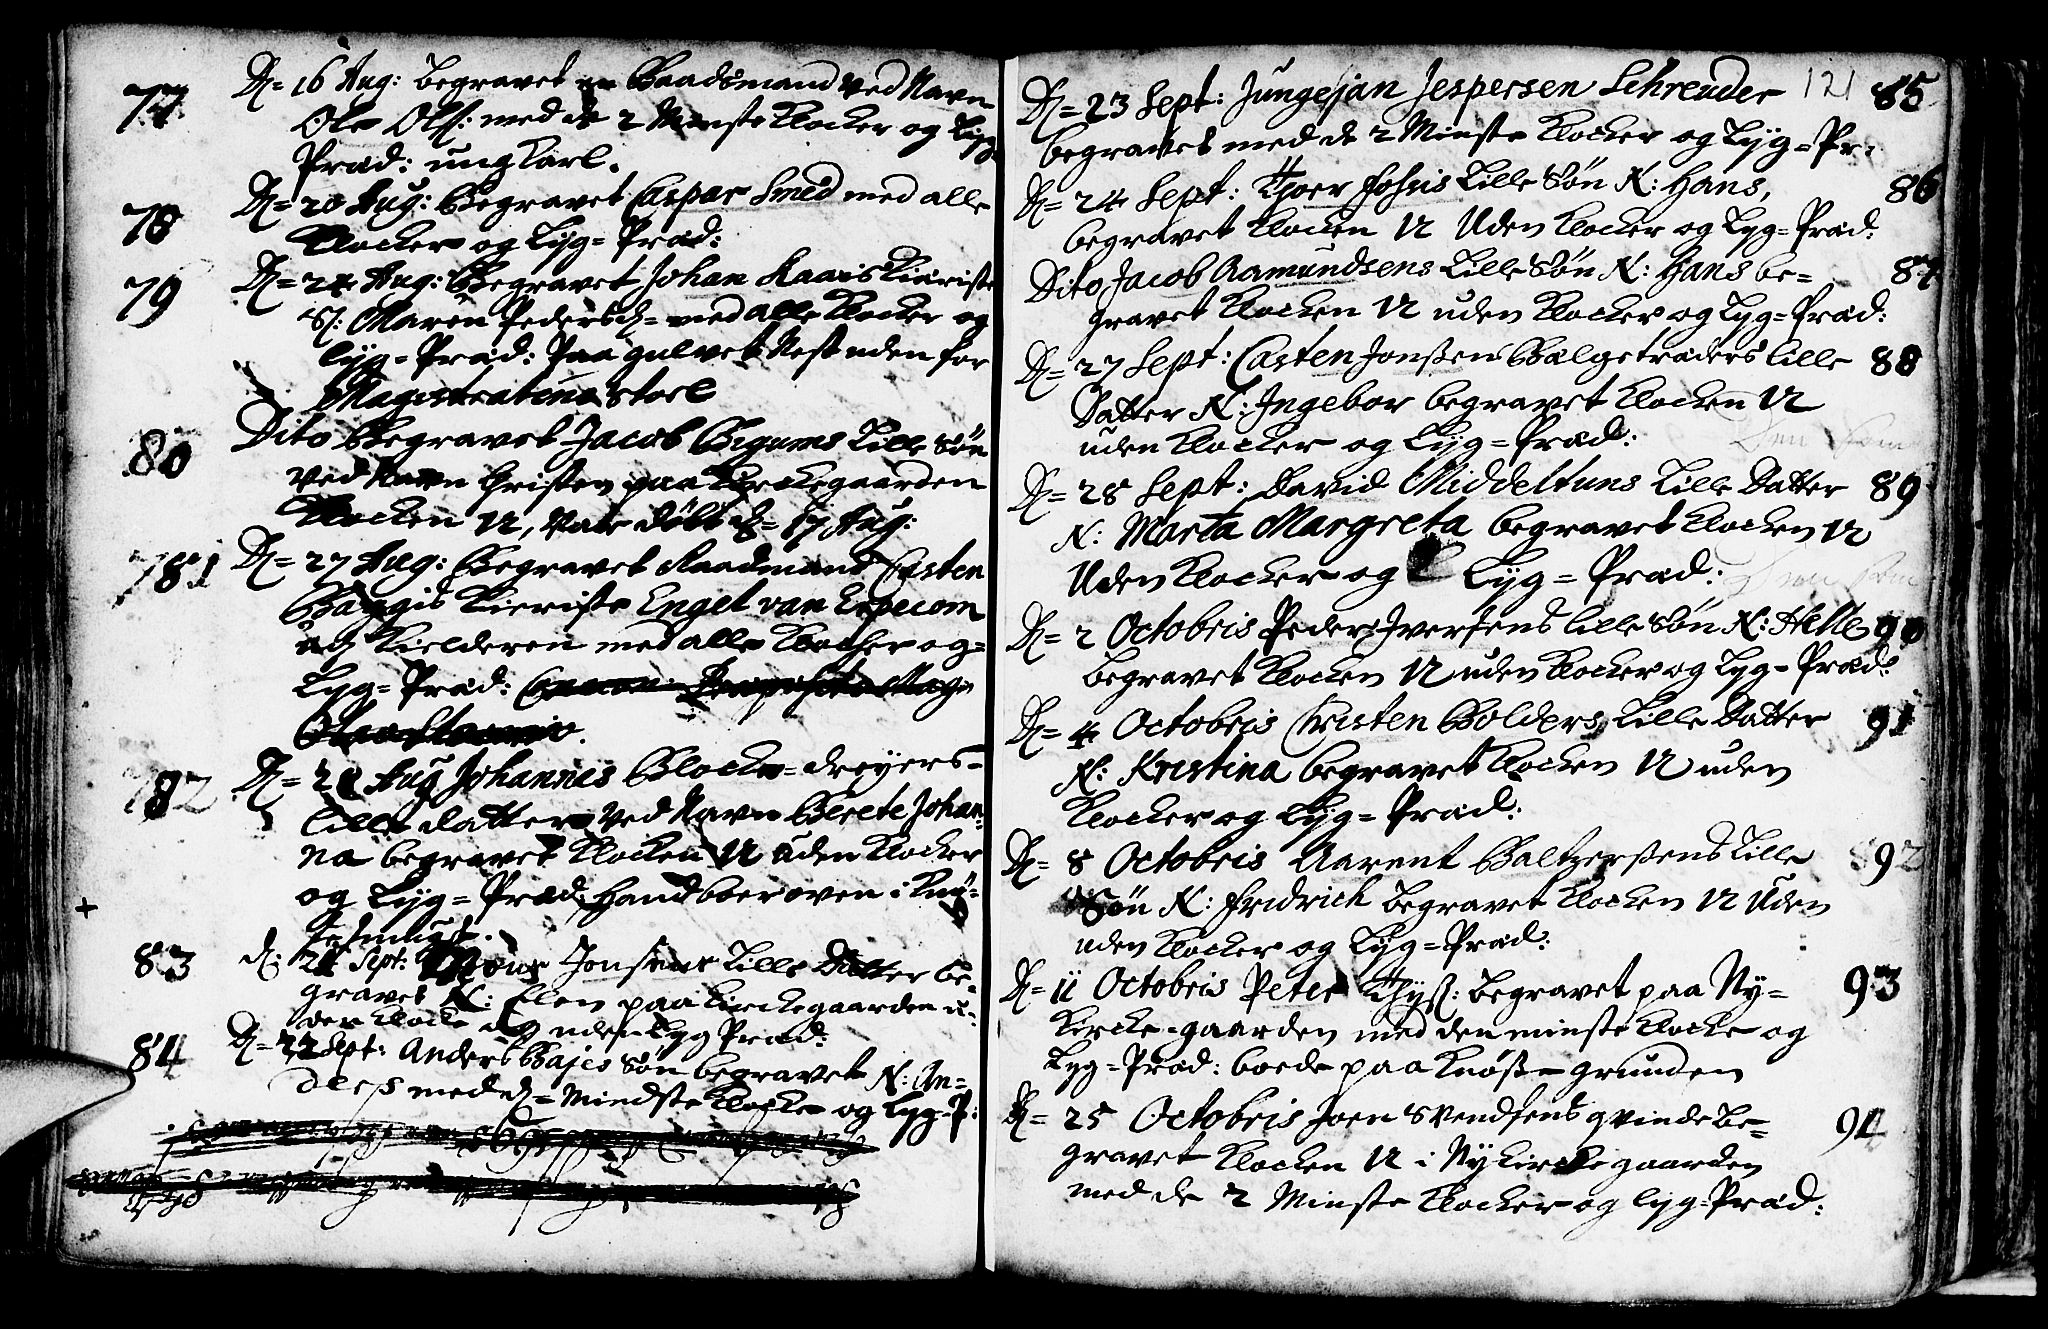 77 D= 16 Aug: begravet en Baadsmand ved Navn
Ole Ols: med de 2 Minste Klocker og Lyg=
Præd: ung Karl.
78 D= 20 Aug: Begravet Caspar Smed med alle
Klocker og Lyg= Præd:
79 D= 24 Aug: Begravet Johan Raais Kieriste
S: Maren Pedersd= med alle Klocker og
Lyg= Præd: Paa gulvet Nest uden for
Magistratens Stoel
80 Dito Begravet Jacob Begums Lille Søn
ved Navn Christen paa Kirckegaarden
Klocken 12, var døbt d= 17 Aug:
781 D= 27 Aug: Begravet Raadmand Casten
Baggis Kieriste Engel van Erpecom
udj Kielderen med alle Klocker og=
Lyg= Præd:
782 D= 28 Aug Johannes Blocke=dreyers=
lille datter ved Navn Berete Johan=
na begravet Klocken 12 uden Klocker
og Lyg= Præd: Hand boer oven i Knø=
83 d: 21 Sept: Jonsens Lille Datter be=
gravet N: Elen paa Kirckegaarden u=
den Klocke og uden Lyg Præd:
84 D= 22 Sept: Anders Bajes Søn begravet N: An=
ders med d= Mindste Klocke og Lyg=P:
121
D= 23 Sept: Jungejan Jespersen Schreuder 85
begravet med de 2 Minste Klocker og Lyg= Pr:
D= 24 Sept: Tjoer Johsis Lille Søn N: Hans, 86
begravet Klocken 12 Uden Klocker og Lyg= Præd:
Dito Jacob Aamundsens Lille Søn N: Hans be= 87
gravet Klocken 12 uden Klocker og Lyg= Præd:
D= 27 Sept: Casten Jonssens Bælgetræders lille 88
Datter N: Ingebor begravet Klocken 12
uden Klocker og Lyg= Præd:
D= 28 Sept: David Middeltuns Lille Datter 89
N: Marta Margreta begravet Klocken 12
Uden Klocker og Lyg= Præd:
D= 2 Octobris Peder Iversens lille Søn N: Helle 90
begravet Klocken 12 uden Klocker og Lyg= Præd:
D= 4 Octobris Christen Bolders Lille Datter 91
N: Kristina begravet Klocken 12 uden
Klocker og Lyg= Præd:
D= 8 Octobris Aarent Baltzerssens Lille 892
Søn N: Fridrich begravet Klocken 12 Uden
uden Klocker og Lyg= Præd:
D= 11 Octobris Peter Thyss: begravet paa Ny= 93
Kircke=gaarden med den minste Klocke og
Lyg= Præd: boede paa Knøsse grunden
D= 25 Octobris Joen Svendsens qvinde be= 94
gravet Klocken 12 i Nykircke gaarden
med de 2 Minste Klocker og Lyg=Præd: